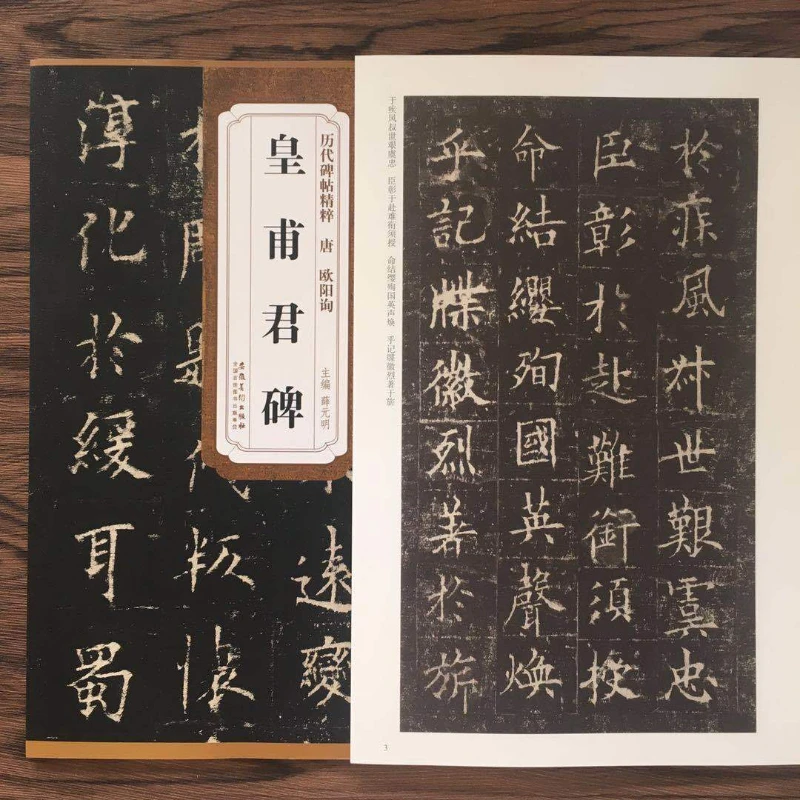 历代碑帖精粹 唐 欧阳询
皇甫君碑
主编 薛元明
安徽美术出版社
全国百佳图书出版单位
遠變
叛懷
淳化於緩耳蜀
於疾風叔世艱虞忠
臣彰於赴難銜須授
命結纓殉國英聲煥
乎記牒徽烈著於旂
于疾风叔世艰虞忠 臣彰于赴难衔须授 命结缨殉国英声焕 乎记牒徽烈著于旂
3